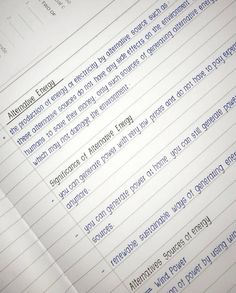 Alternative Energy
the production of energy or electricity by alternative source such as
there alternative sources do not have any side effects on the environment
humans to save their money. only such sources of generating alternative energy
which may not damage the environment.
Significance of Alternative Energy
you can generate power with very low prices and do not have to pay
anymore.
you can generate power at home. you can still generate power
sources.
renewable sustainable ways of generating
Alternatives Sources of energy
Wind Power
of power by using